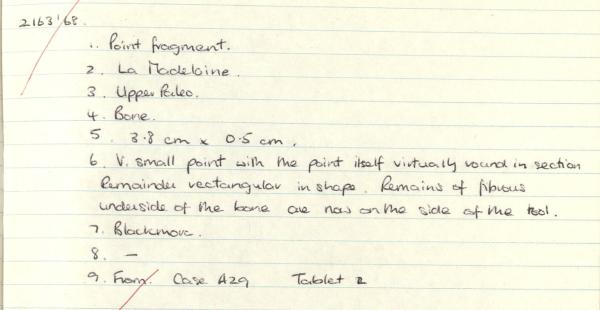 2163'68.
1. Point fragment.
2. La Madelaine.
3. Upper Paleo.
4. Bone.
5. 3.8 cm x 0.5 cm.
6. V. small point with the point itself virtually round in section
Remainder rectangular in shape. Remains of fibrous
underside of the bone are now on the side of the tool.
7. Blackmore.
8. —
9. From. Case A29 Tablet 2